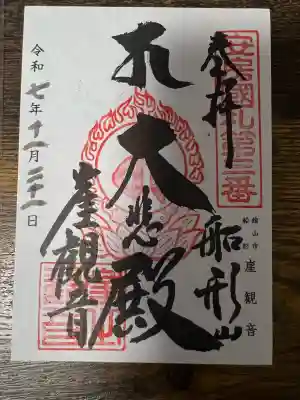 安房國札第三番
奉拝
船形山
館山市
船形
崖観音
大悲殿
崖觀音
令和七年十一月二十一日